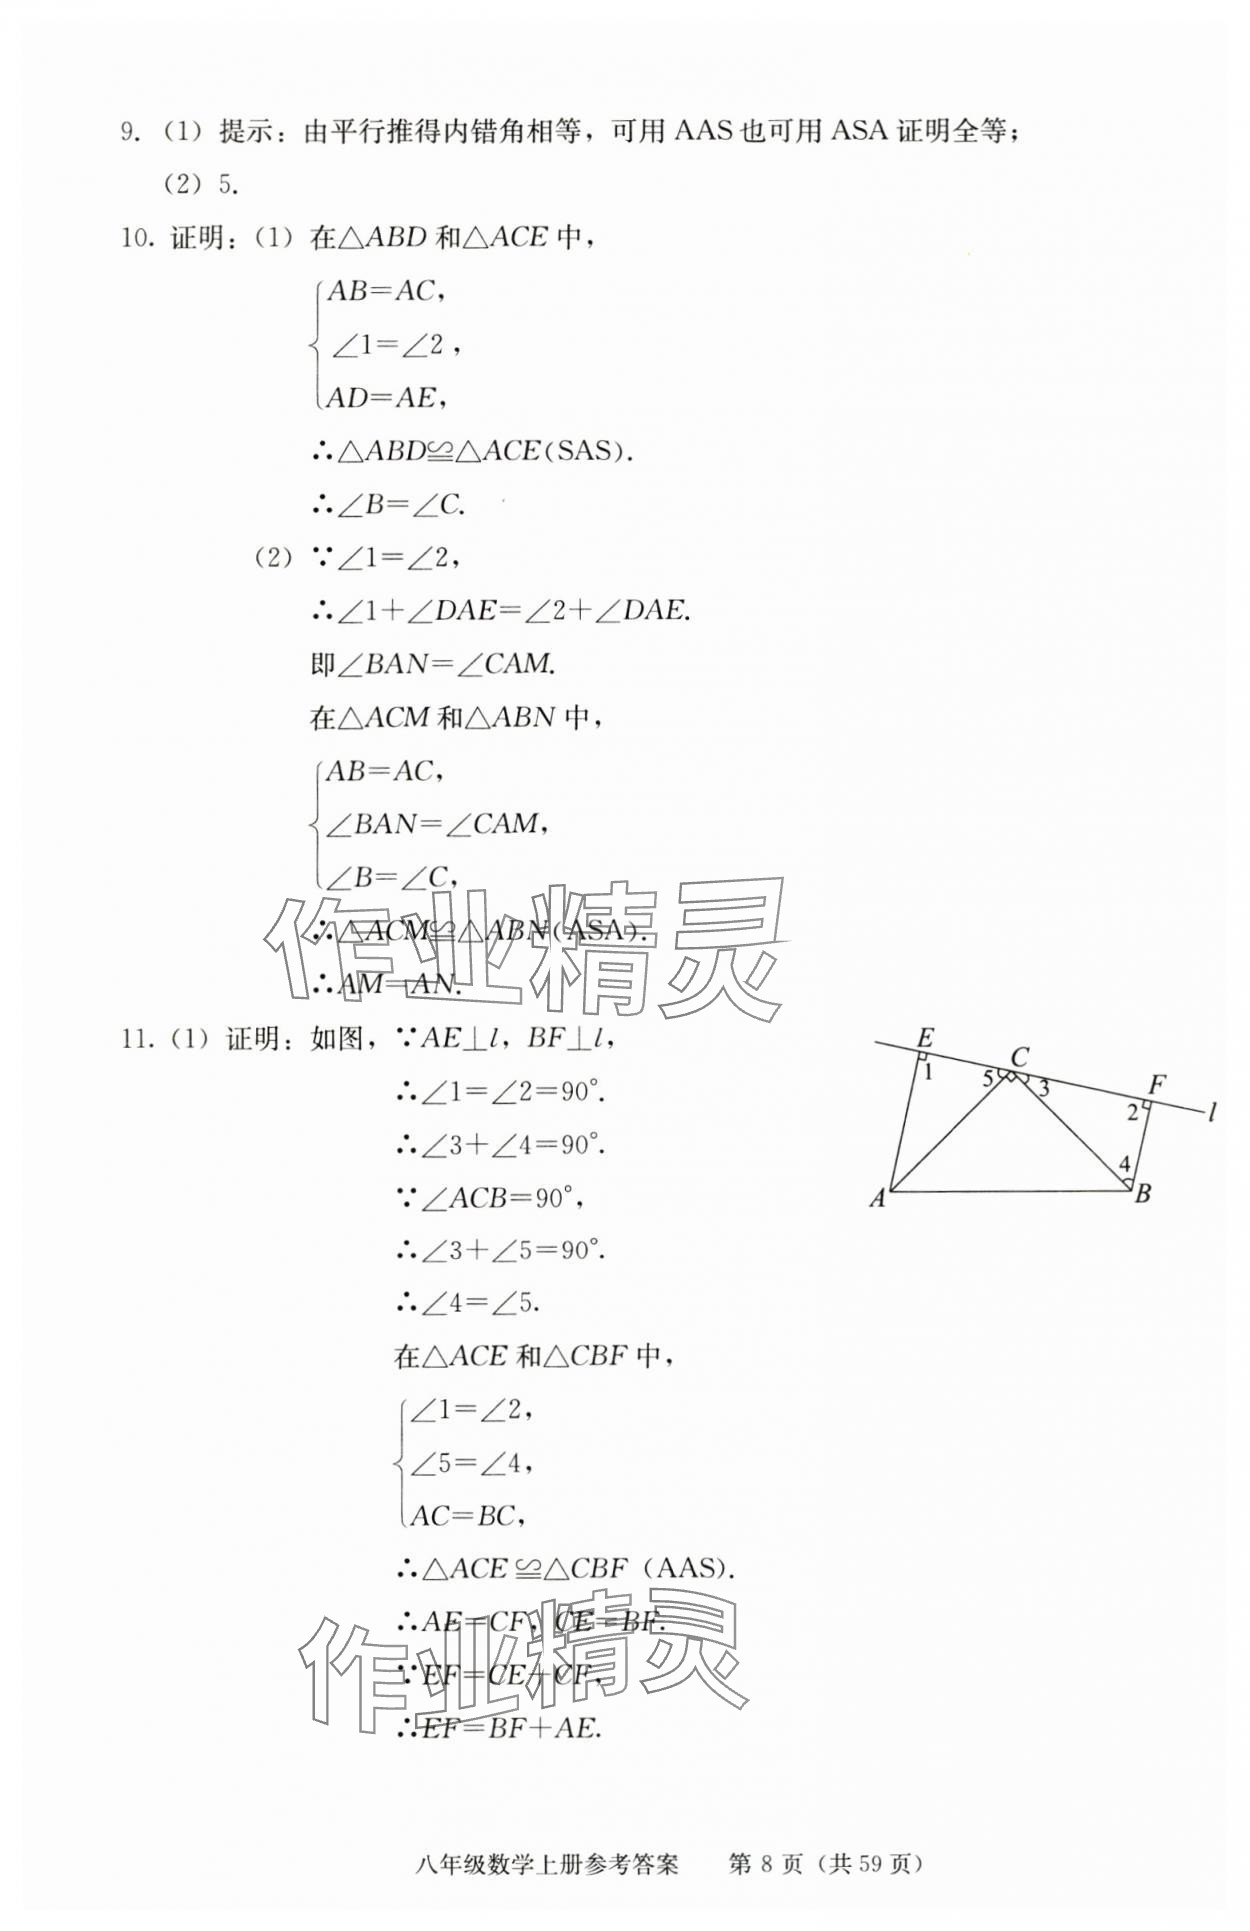 9. (1) 提示：由平行推得内错角相等，可用 AAS 也可用 ASA 证明全等；
(2) 5.
10. 证明：(1) 在△ABD 和△ACE 中，
AB=AC，
∠1=∠2，
AD=AE，
∴△ABD≌△ACE(SAS).
∴∠B=∠C.
(2) ∵∠1=∠2，
∴∠1+∠DAE=∠2+∠DAE.
即∠BAN=∠CAM.
在△ACM 和△ABN 中，
AB=AC，
∠BAN=∠CAM，
∠B=∠C，
∴△ACM≌△ABN(ASA).
∴AM=AN.
作业精灵
11. (1) 证明：如图，∵AE⊥l，BF⊥l，
∴∠1=∠2=90°.
∴∠3+∠4=90°.
∵∠ACB=90°，
∴∠3+∠5=90°.
∴∠4=∠5.
在△ACE 和△CBF 中，
∠1=∠2，
∠5=∠4，
AC=BC，
∴△ACE≌△CBF (AAS).
∴AE=CF，CE=BF.
∵EF=CE+CF，
∴EF=BF+AE.
作业精灵
E
C
F
l
1
5
3
2
4
A
B
八年级数学上册参考答案 第 8 页（共 59 页）